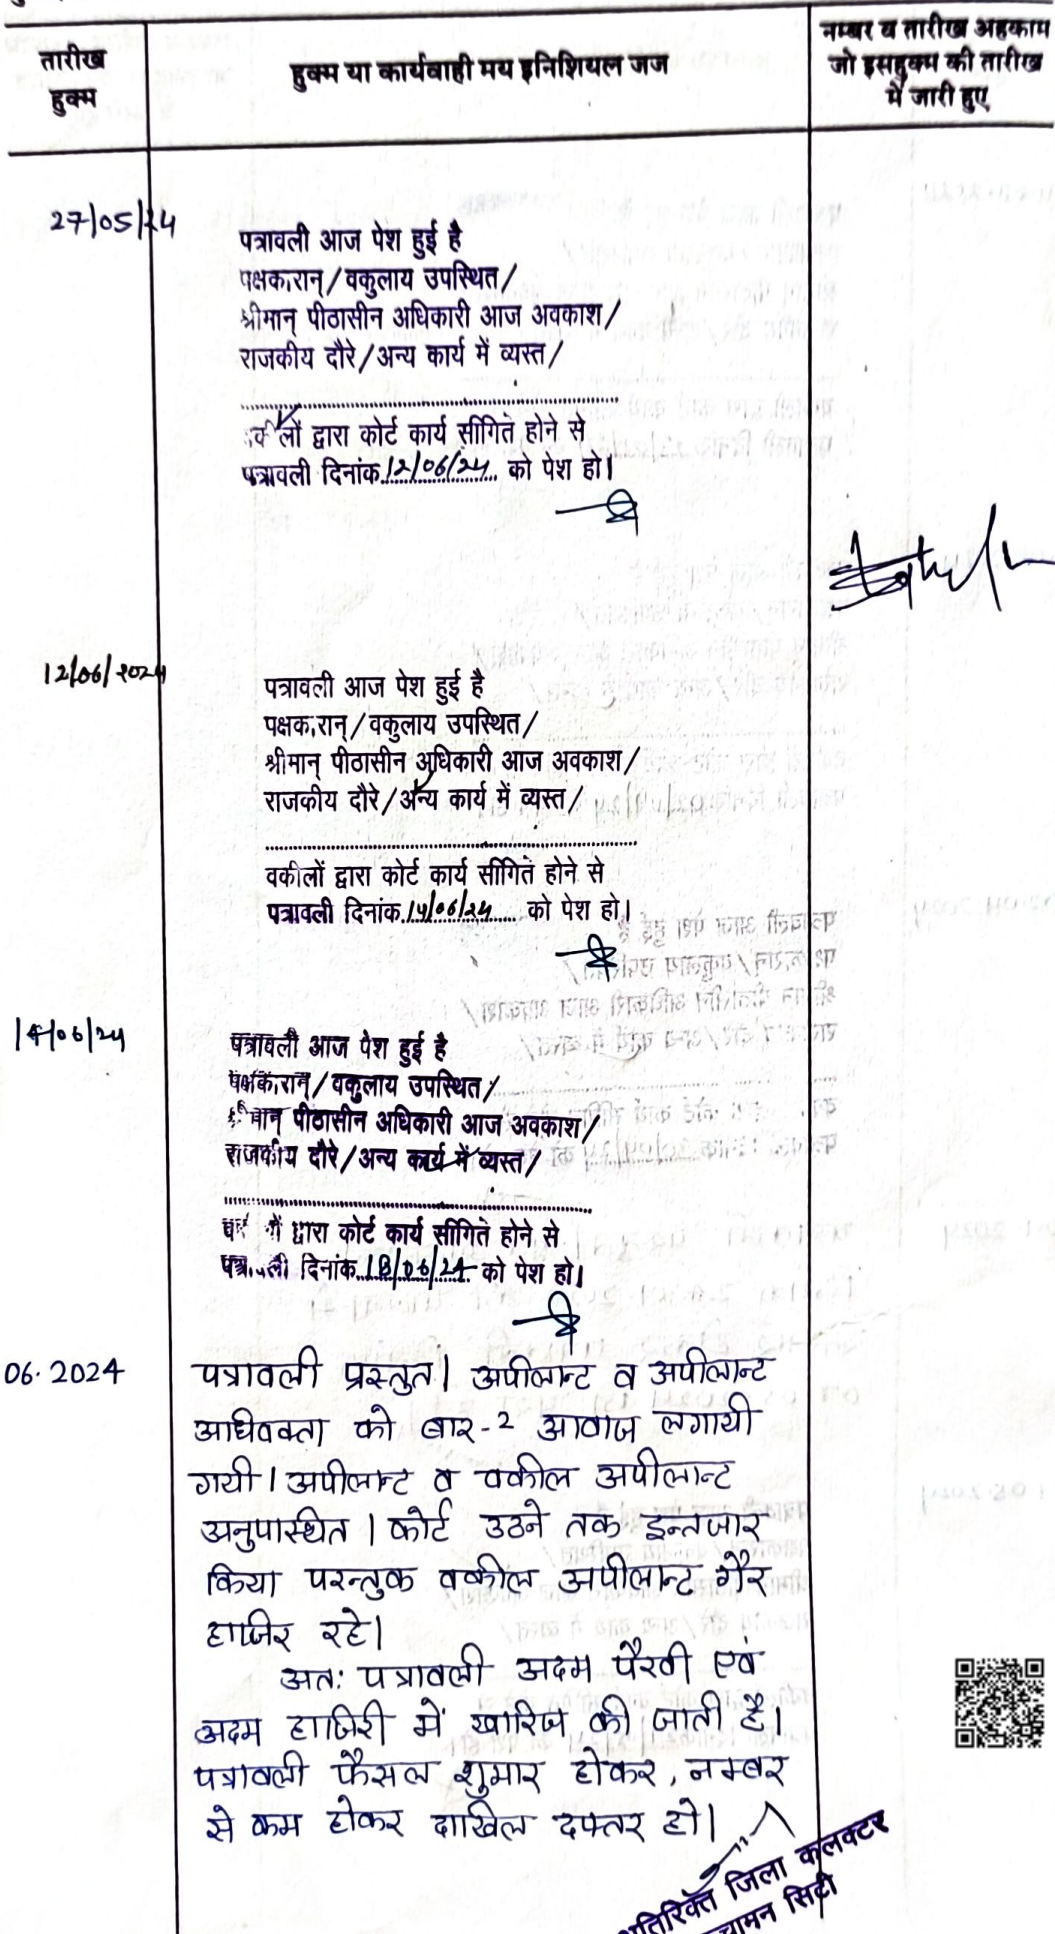 तारीख
हुक्म
हुक्म या कार्यवाही मय इनिशियल जज
नम्बर व तारीख अहकाम
जो इसहुक्म की तारीख
में जारी हुए
27/05/24
पत्रावली आज पेश हुई है
पक्षकारान्/वकुलाय उपस्थित/
श्रीमान् पीठासीन अधिकारी आज अवकाश/
राजकीय दौरे/अन्य कार्य में व्यस्त/
वकीलों द्वारा कोर्ट कार्य सीगिते होने से
पत्रावली दिनांक 12/06/24 को पेश हो।
12/06/2024
पत्रावली आज पेश हुई है
पक्षकारान्/वकुलाय उपस्थित/
श्रीमान् पीठासीन अधिकारी आज अवकाश/
राजकीय दौरे/अन्य कार्य में व्यस्त/
वकीलों द्वारा कोर्ट कार्य सीगिते होने से
पत्रावली दिनांक 14/06/24 को पेश हो।
14/06/24
पत्रावली आज पेश हुई है
पक्षकारान्/वकुलाय उपस्थित/
श्रीमान् पीठासीन अधिकारी आज अवकाश/
राजकीय दौरे/अन्य कार्य में व्यस्त/
द्वारा कोर्ट कार्य सीगिते होने से
पत्रावली दिनांक 18/06/24 को पेश हो।
06.2024
पत्रावली प्रस्तुत। अपीलान्ट व अपीलान्ट
अधिवक्ता को बार-2 आवाज लगायी
गयी। अपीलान्ट व वकील अपीलान्ट
अनुपस्थित। कोर्ट उठने तक इन्तजार
किया परन्तुक वकील अपीलान्ट गैर
हाजिर रहे।
अतः पत्रावली अदम पैरवी एवं
अदम हाजिरी में खारिज की जाती है।
पत्रावली फैसल शुमार होकर, नम्बर
से कम होकर दाखिल दफ्तर हो।
अतिरिक्त जिला कलक्टर
चामन सिटी